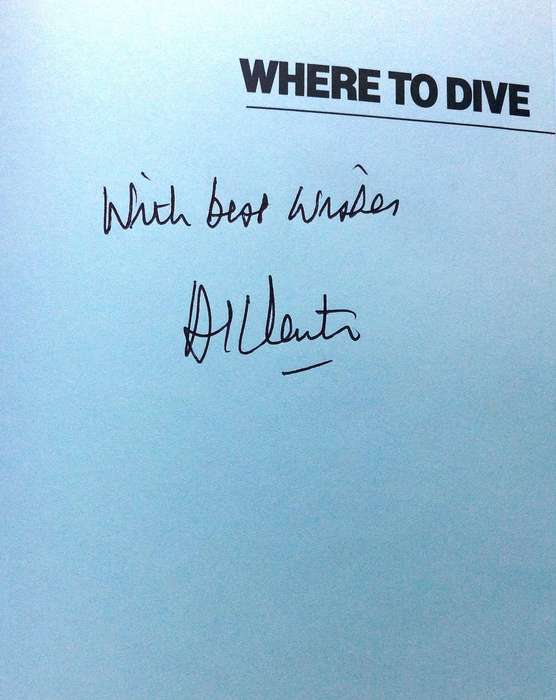 WHERE TO DIVE
With best wishes